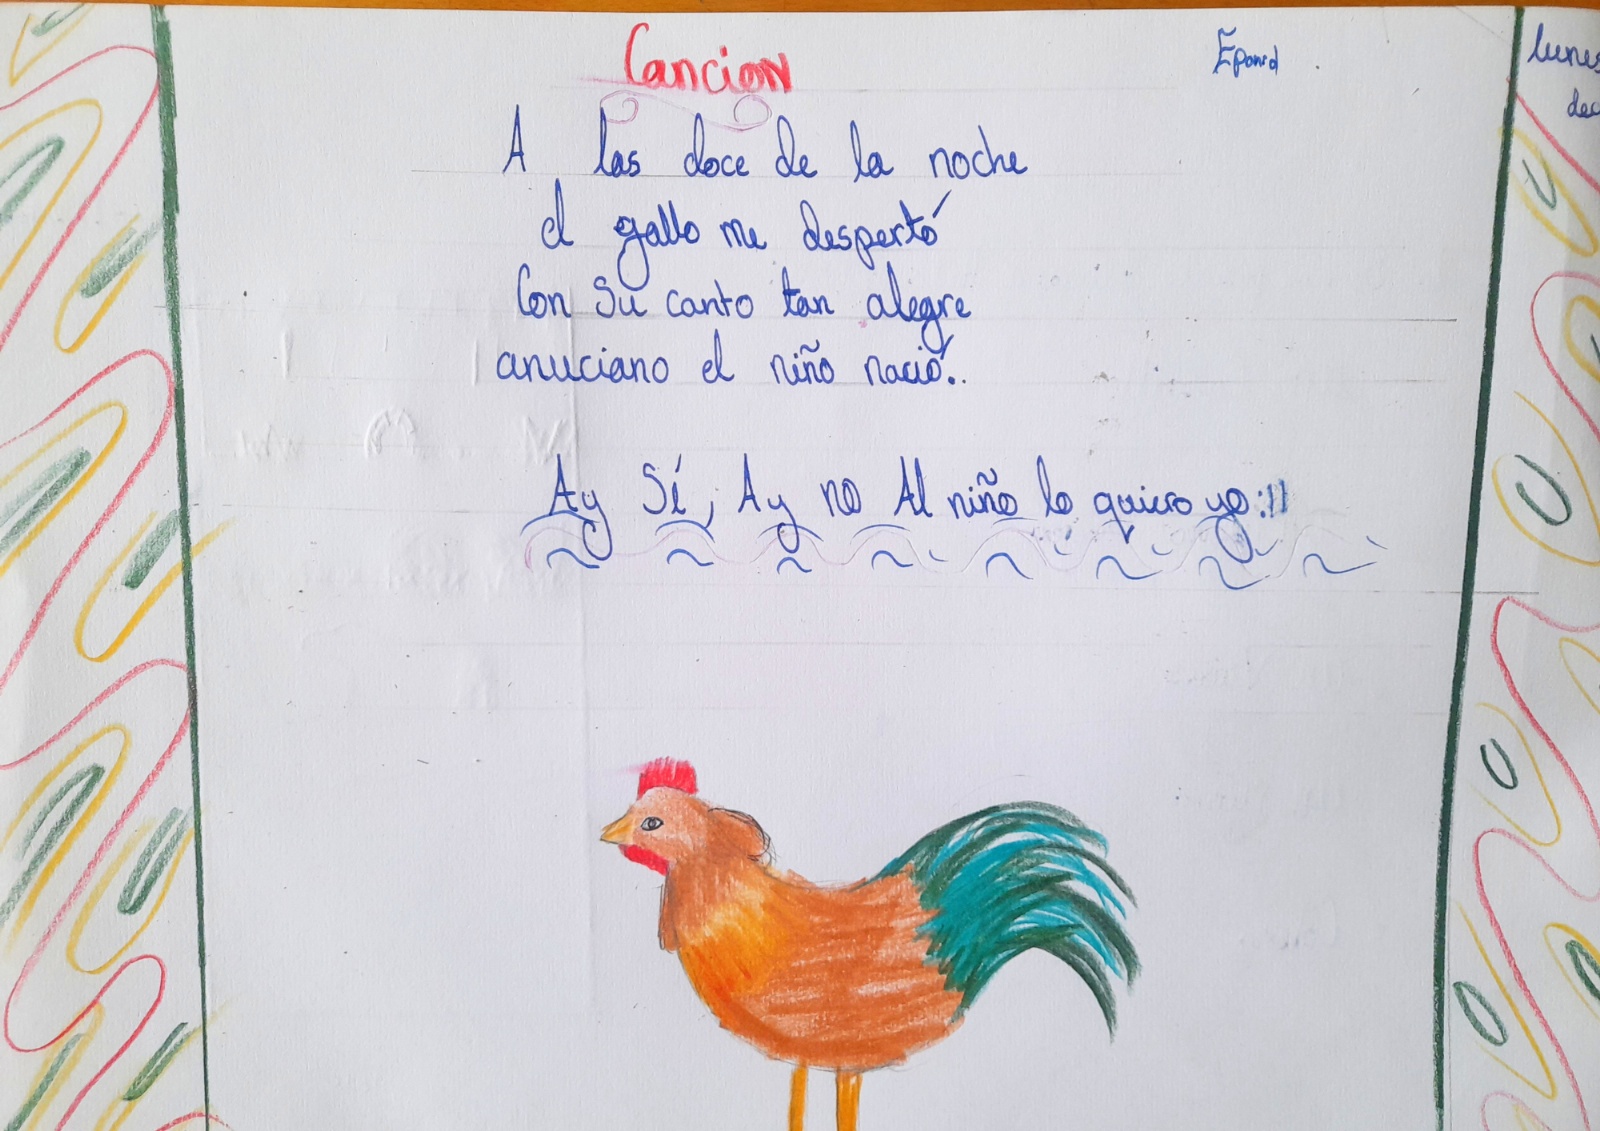 Cancion
A las doce de la noche
el gallo me despertó
Con Su canto tan alegre
anuciano el niño nació.
Ay Sí, Ay no Al niño lo quiero yo:||
lunes